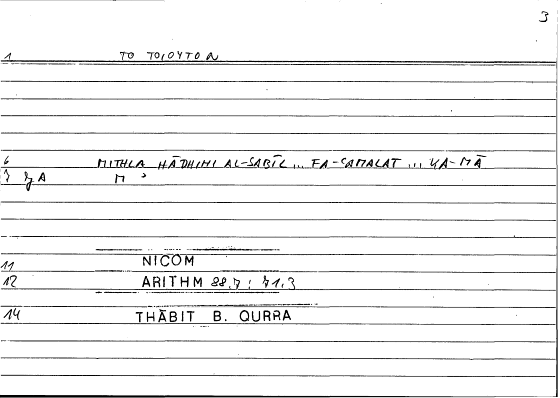 3
1 TO TOIOYTON
6 MITHLA HĀDHIHI AL-SABĪL ... FA-ṢAMALAT ... WA-MĀ
7 7A M ʾ
11 NICOM
12 ARITHM 88.7 ; 71.3
14 THĀBIT B. QURRA